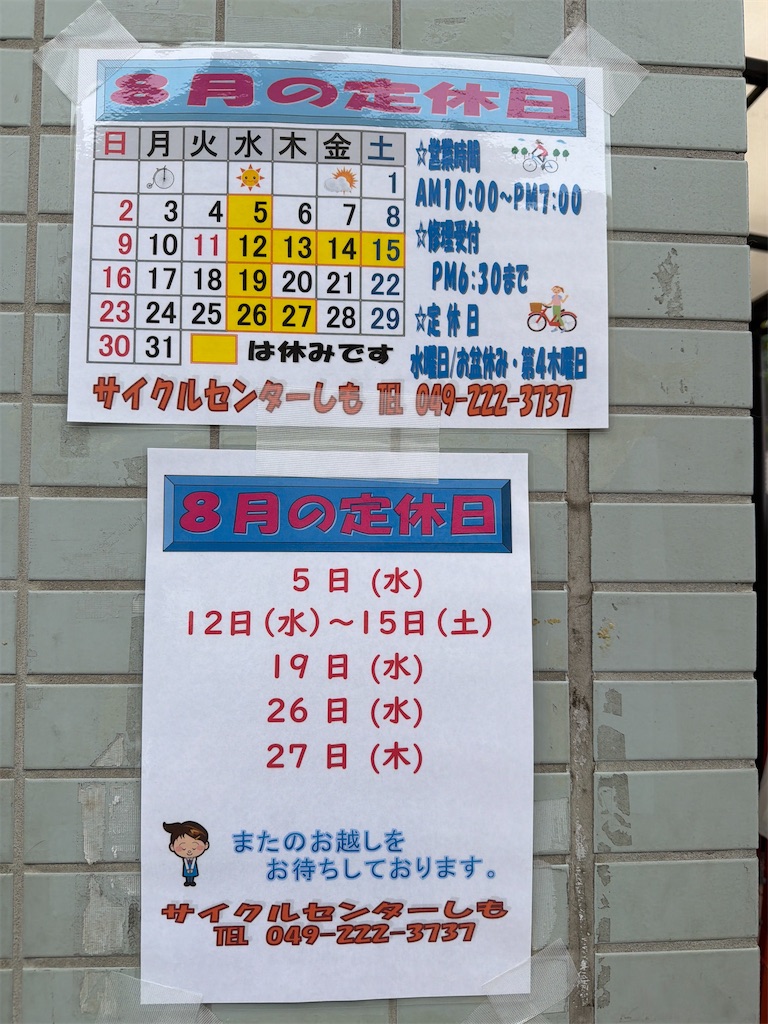 8月の定休日
日 月 火 水 木 金 土
1
2 3 4 5 6 7 8
9 10 11 12 13 14 15
16 17 18 19 20 21 22
23 24 25 26 27 28 29
30 31 は休みです
☆営業時間
AM10:00～PM7:00
☆修理受付
PM6:30まで
☆定休日
水曜日/お盆休み・第4木曜日
サイクルセンターしも TEL 049-222-3737
8月の定休日
5日(水)
12日(水)～15日(土)
19日(水)
26日(水)
27日(木)
またのお越しを
お待ちしております。
サイクルセンターしも
TEL 049-222-3737